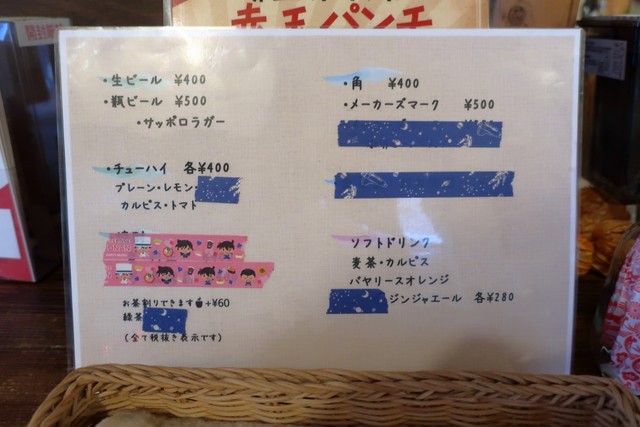 赤玉パンチ
・生ビール ¥400
・瓶ビール ¥500
・サッポロラガー
・チューハイ 各¥400
プレーン・レモン・
カルピス・トマト
お茶割りできます +¥60
緑茶
(全て税抜き表示です)
・角 ¥400
・メーカーズマーク ¥500
ソフトドリンク
麦茶・カルピス
バヤリースオレンジ
ジンジャエール 各¥280